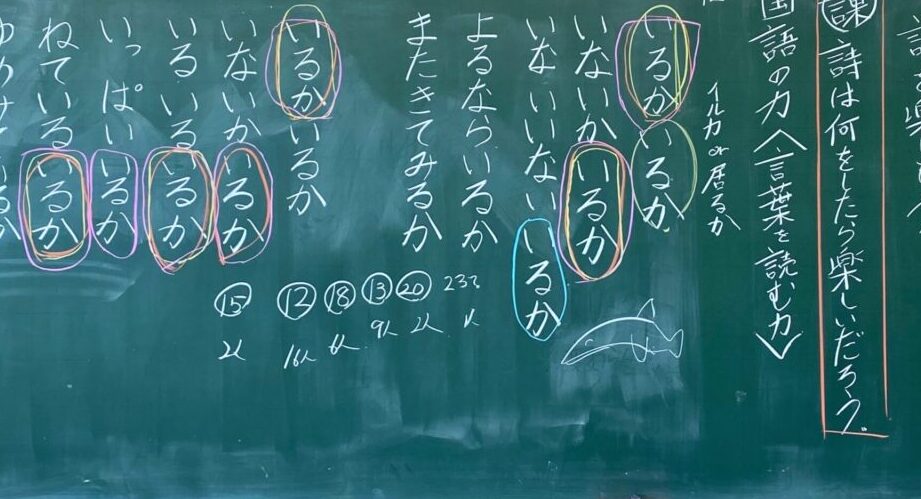 課 詩は何をしたら楽しいだろう。
国語の力〈言葉を読む力〉
イルカ or 居るか
いるかいるか
いないかいるか
いないいないいるか
よるならいるか
またきてみるか
いるかいるか
いないかいるか
いるいるいるか
いっぱいいるか
ねているいるか
ゆめみているか
⑮ ⑫ ⑱ ⑬ ⑳
2人 9人 2人